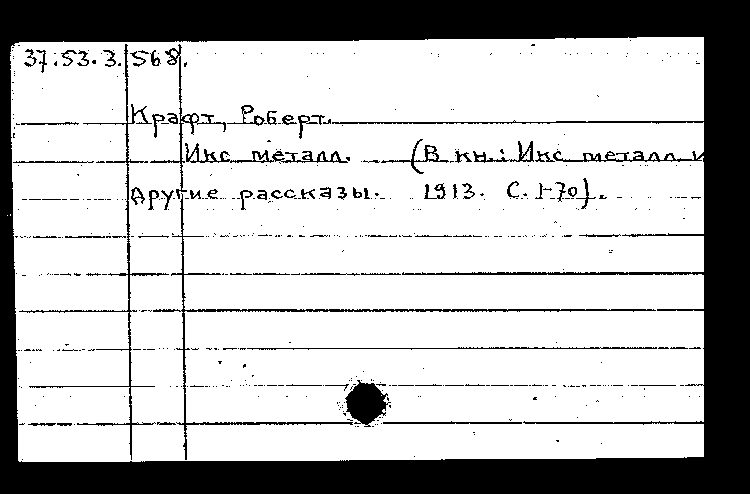 37.53.3.568.
Крафт, Роберт.
Икс металл. (В кн.: Икс металл и
другие рассказы. 1913. С. 1-70).